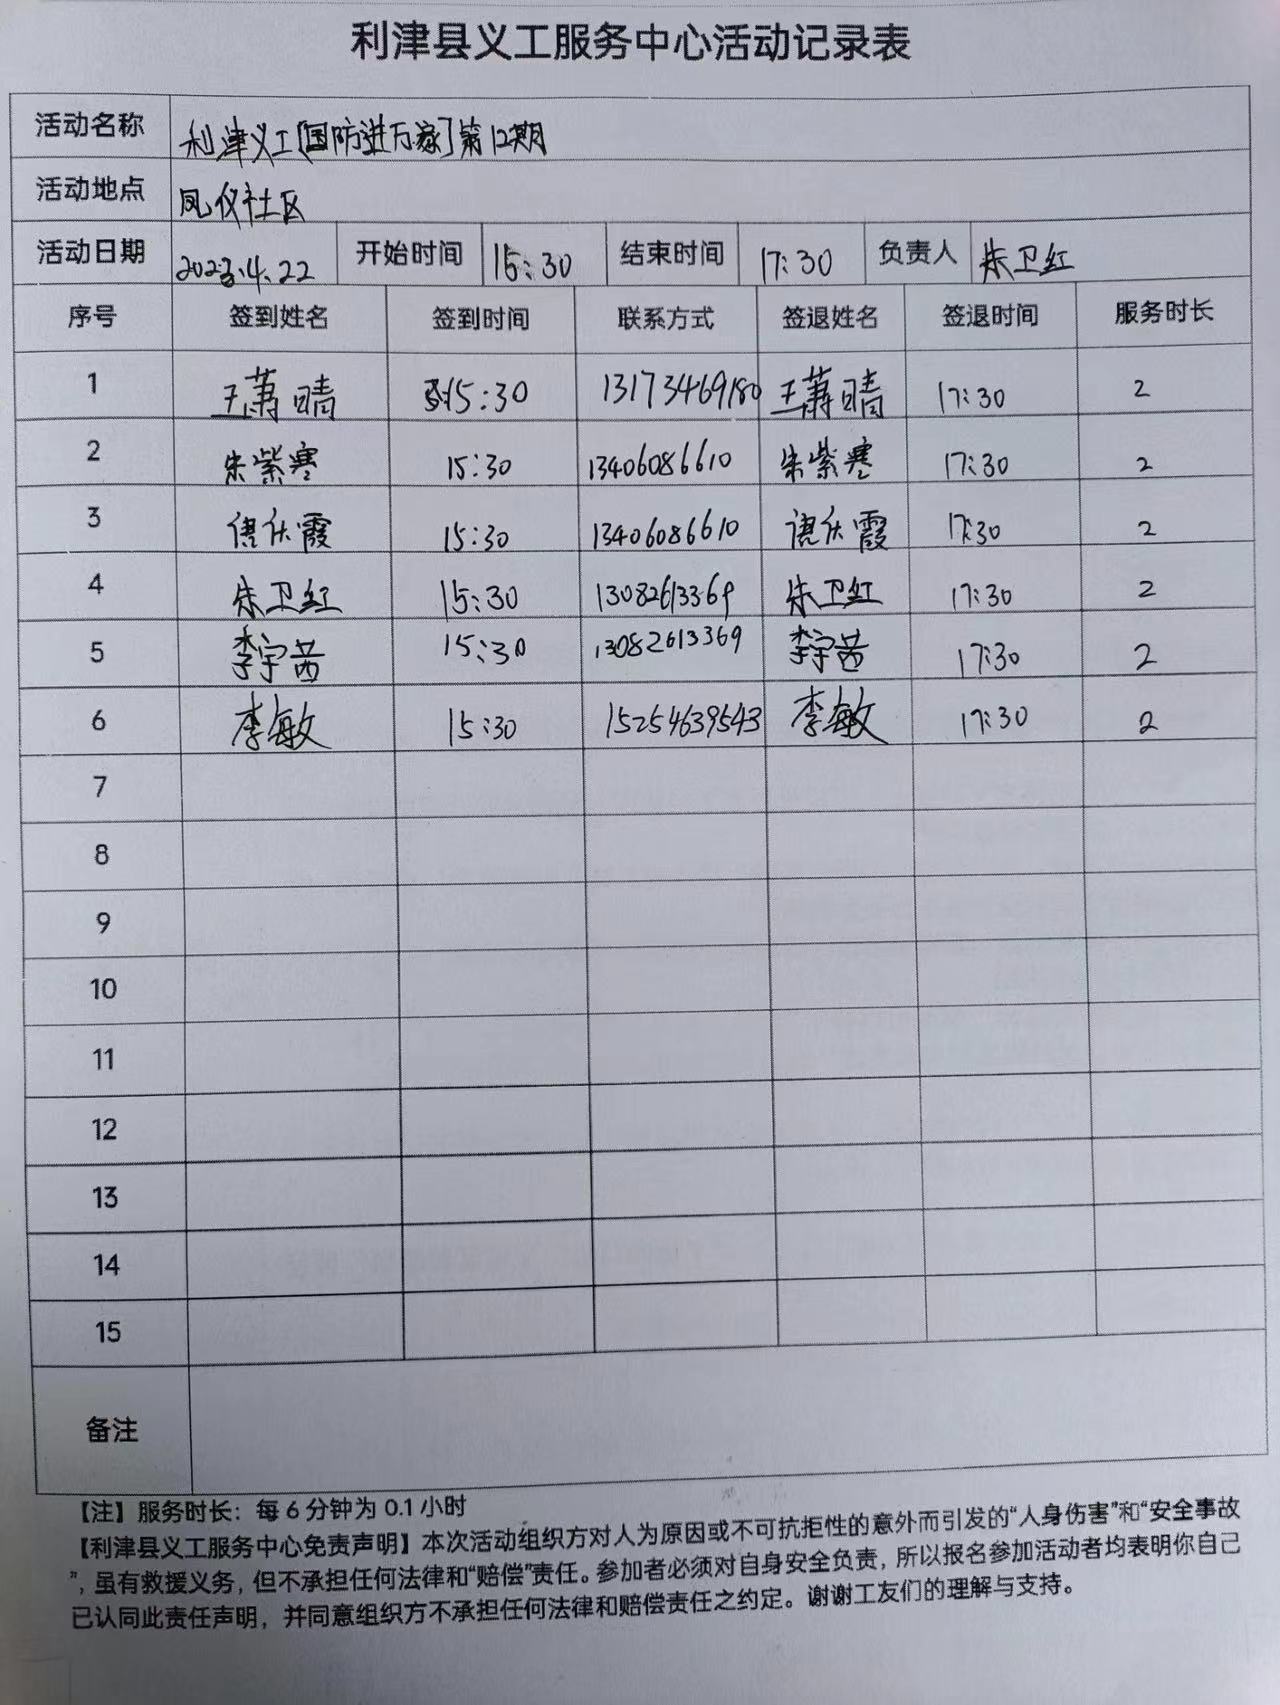 利津县义工服务中心活动记录表
活动名称 利津义工[国防进万家]第12期
活动地点 凤仪社区
活动日期 2023.4.22 开始时间 15:30 结束时间 17:30 负责人 朱卫红
序号 签到姓名 签到时间 联系方式 签退姓名 签退时间 服务时长
1 王萧晴 15:30 13173469180 王萧晴 17:30 2
2 朱紫寒 15:30 13406086610 朱紫寒 17:30 2
3 霞 15:30 13406086610 霞 17:30 2
4 朱卫红 15:30 13082613369 朱卫红 17:30 2
5 李宇茜 15:30 13082613369 李宇茜 17:30 2
6 李敏 15:30 15254639543 李敏 17:30 2
7
8
9
10
11
12
13
14
15
备注
【注】服务时长：每6分钟为0.1小时
【利津县义工服务中心免责声明】本次活动组织方对人为原因或不可抗拒性的意外而引发的“人身伤害”和“安全事故
”，虽有救援义务，但不承担任何法律和“赔偿”责任。参加者必须对自身安全负责，所以报名参加活动者均表明你自己
已认同此责任声明，并同意组织方不承担任何法律和赔偿责任之约定。谢谢工友们的理解与支持。